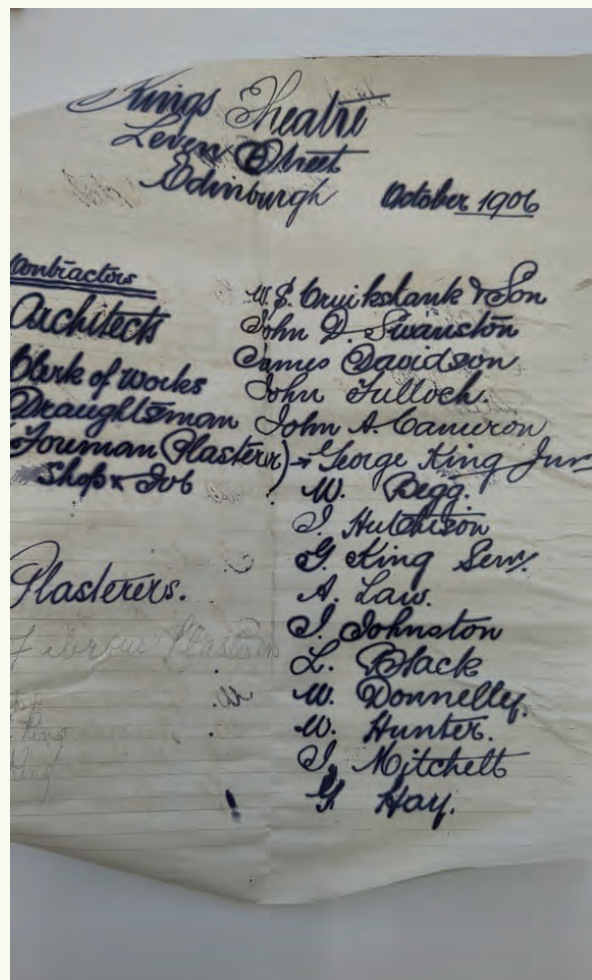 Kings Theatre
Leven Street
Edinburgh
October 1906
Contractors
W. S. Cruikshank & Son
Architects
John D. Swanston
James Davidson
Clerk of Works
John Tulloch.
Draughtsman
John A. Cameron
(Foreman Plasterer)
George King Junr
Shop & Job
W. Begg.
J. Hutchison
G. King Senr
Plasterers.
A. Law.
J. Johnston
Fibrous Plasterers
L. Black
W. Donnelly.
W. Hunter.
King
J. Mitchell
King
G. Hay.